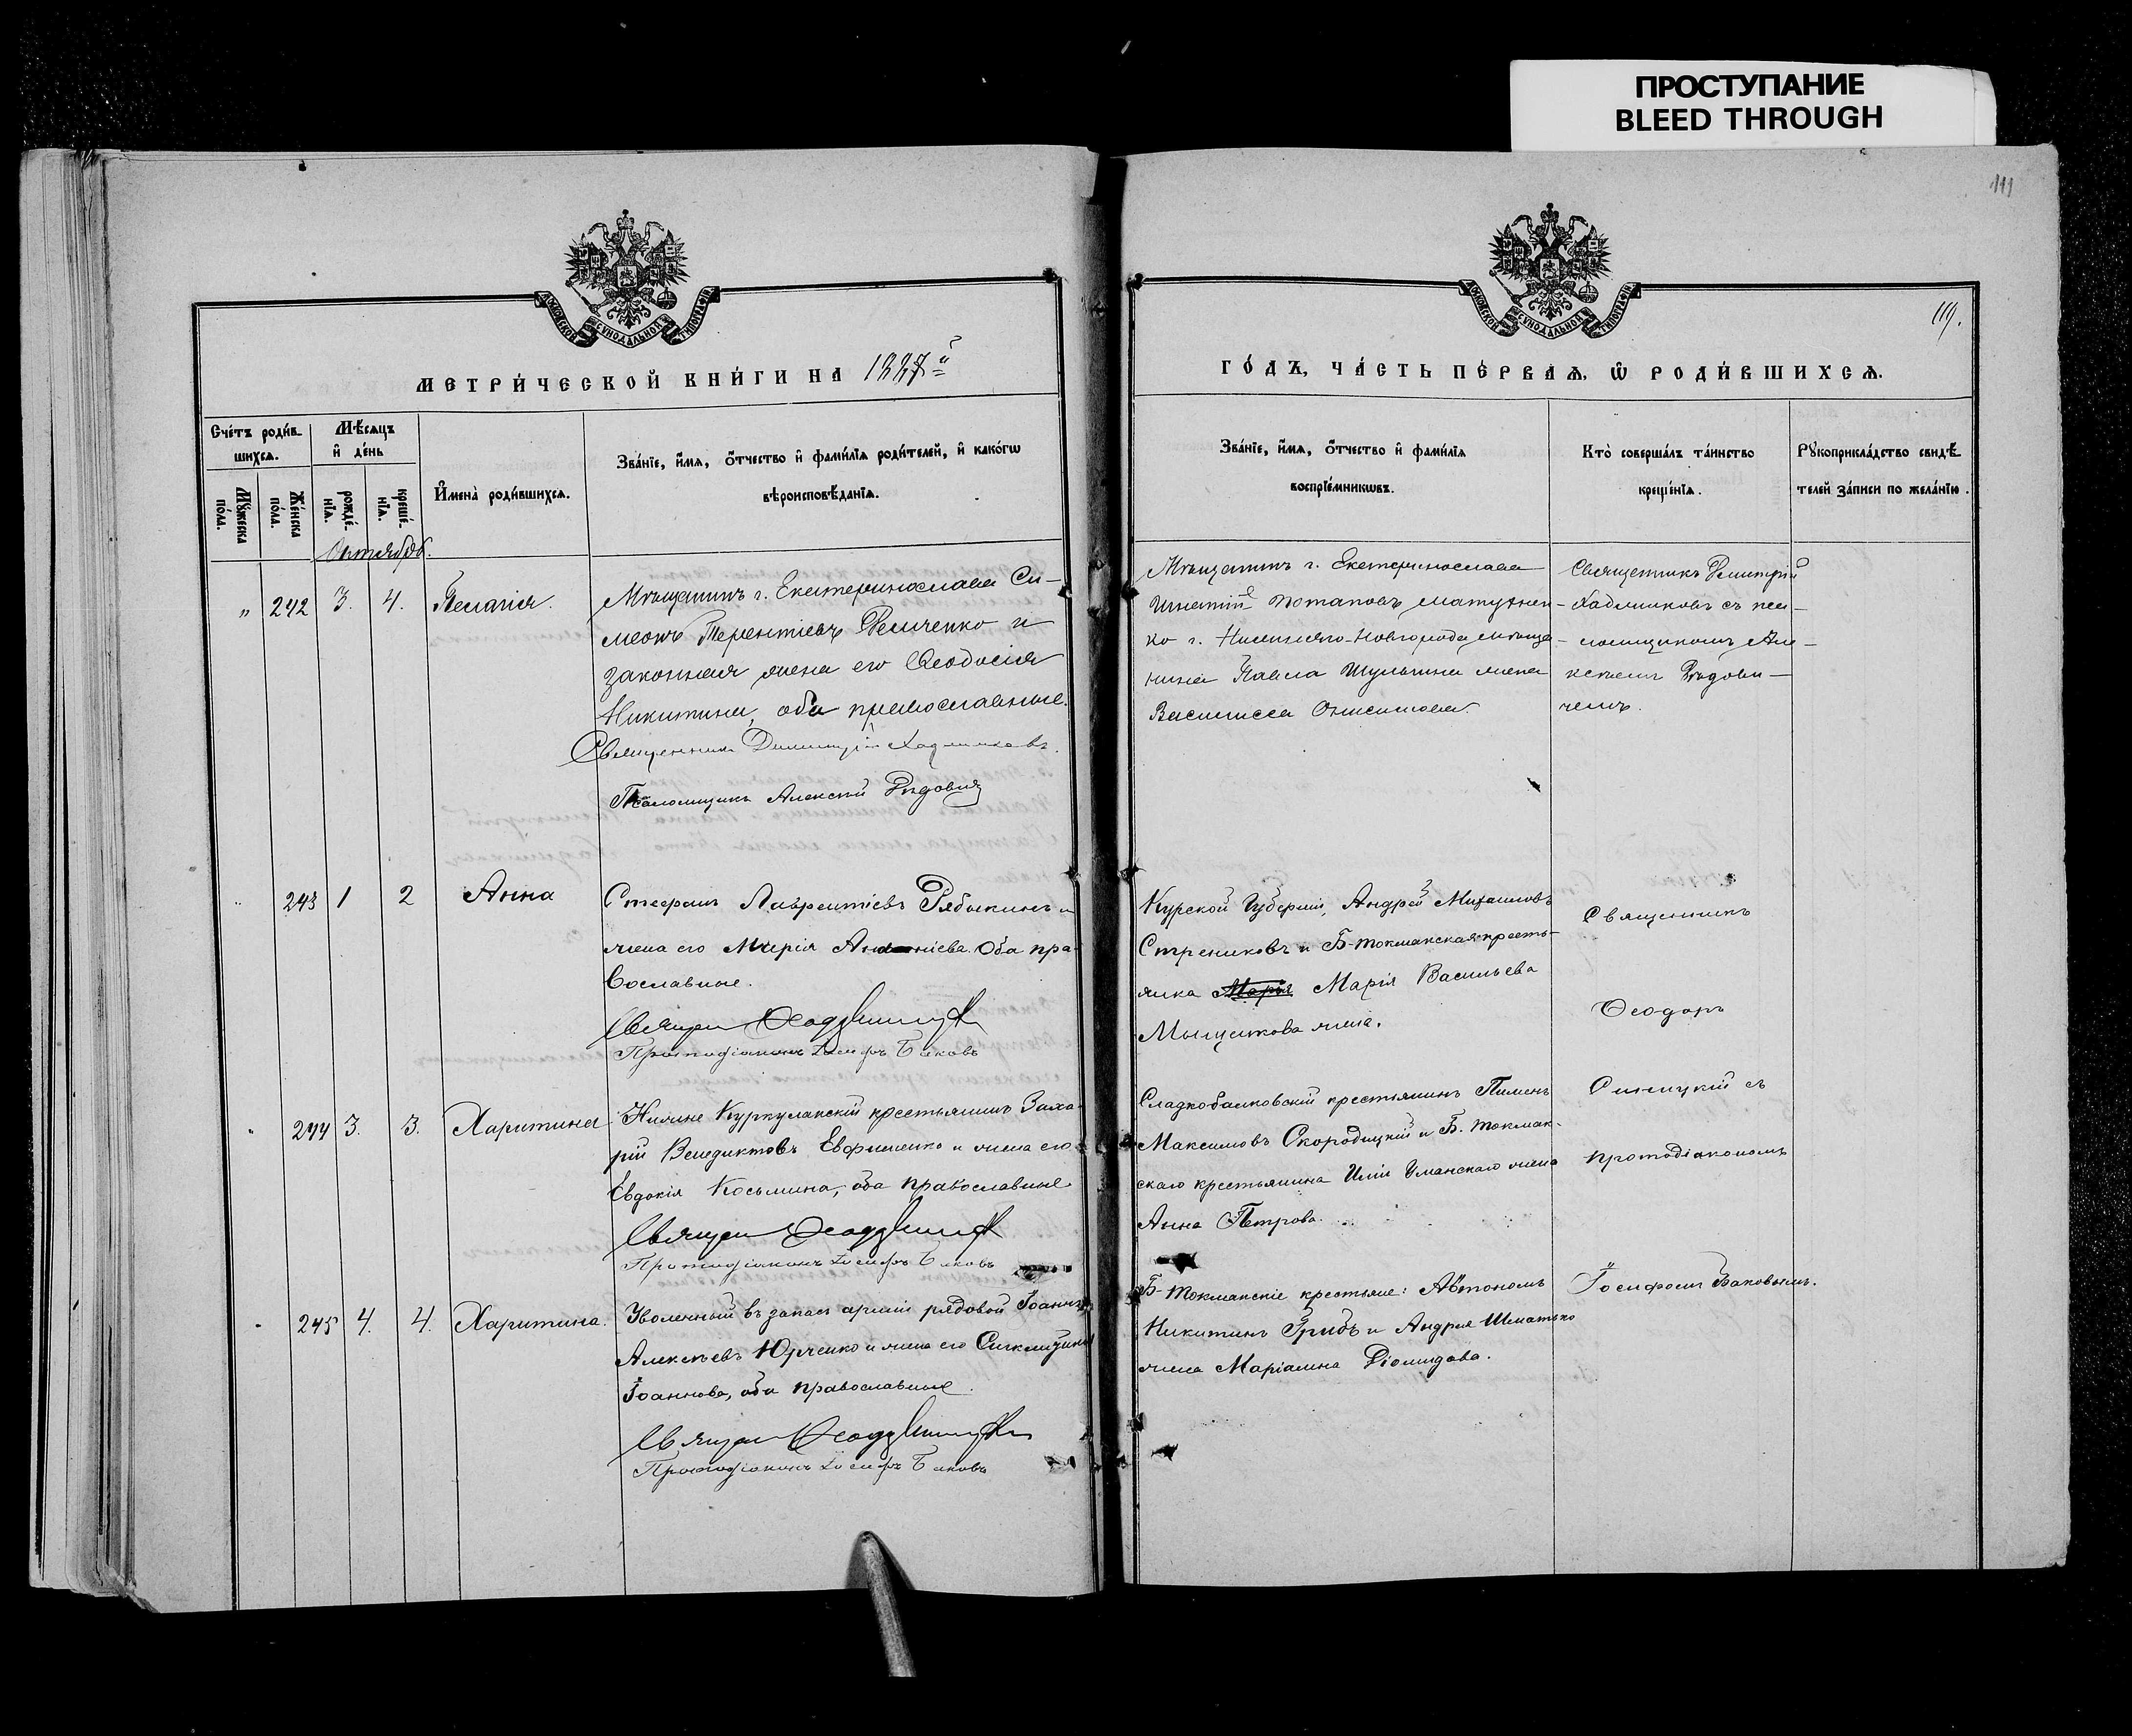 ПРОСТУПАНИЕ
BLEED THROUGH
111
МОСКОВСКОЙ СѴНОДАЛЬНОЙ ТИПОГРАФІИ
МОСКОВСКОЙ СѴНОДАЛЬНОЙ ТИПОГРАФІИ
МЕТРИ́ЧЕСКОЙ КНИ́ГИ НА 1887й
ГО́ДЪ, ЧА́СТЬ ПЕ́РВАѦ, Ѽ РОДИ́ВШИХСѦ.
Сче́тъ роди́в-
шихсѧ.
Мꙋ́жеска по́ла.
Же́нска по́ла.
Мѣ́сѧцъ
и҆ де́нь
рожде́-
нїѧ.
креще́-
нїѧ.
И҆мена̀ роди́вшихсѧ.
Зва́нїе, и҆́мѧ, ѻ҆́тчество и҆ фами́лїѧ роди́телей, и҆ како́гѡ
вѣроисповѣ́данїѧ.
Зва́нїе, и҆́мѧ, ѻ҆́тчество и҆ фами́лїѧ
воспрїе́мникѡвъ.
Кто̀ соверша́лъ та́инство
креще́нїѧ.
Рꙋкоприкла́дство свидѣ́-
телей за́писи по жела́нїю.
Октябрь.
" 242 3. 4. Пелагія.
Мѣщанинъ г. Екатеринослава Си-
меонъ Терентіевъ Величенко и
законная жена его Ѳеодосія
Никитина, оба православные.
Священникъ Димитрій Хаджиновъ.
Псаломщикъ Алексѣй Рѣдовичъ
Мѣщанинъ г. Екатеринослава
Игнатій Потаповъ Матушен-
ко г. Нижняго-Новгорода мѣща-
нина Павла Шульгина жена
Василисса Онисимова.
Священникъ Димитрій
Хаджиновъ съ пса-
ломщикомъ Але-
ксѣемъ Рѣдови-
чемъ.
" 243 1 2 Анна
Стефанъ Лаврентіевъ Рябыкинъ и
жена его Марія оба пра-
вославные.
Протодіаконъ Іосифъ Баковъ
Курской Губерніи, Андрей Михаиловъ
Стрениковъ и Б-Токмакская кресть-
янка Марія Марія Васильева
Мыщикова жена.
Священникъ
Ѳеодоръ
" 244 3. 3. Харитина
Нижне Куркулакскій крестьянинъ Заха-
рій Венедиктовъ Евфименко и жена его
Евдокія Косьмина, оба православные
Протодіаконъ Іосифъ Баковъ
Сладкобалковскій крестьянинъ Пименъ
Максимовъ Скородицкій и Б. Токмак-
скаго крестьянина Иліи Уманскаго жена
Анна Петрова.
Синицкій съ
протодіакономъ
" 245 4. 4. Харитина.
Уволенный въ запасъ арміи рядовой Іоаннъ
Алексѣевъ Юрченко и жена его Синклитикія
Іоаннова, оба православные.
Протодіаконъ Іосифъ Баковъ
Б-Токмакскіе крестьяне: Автономъ
Никитинъ Грибъ и Андрея Шматько
жена Маріамна Діомидова.
Іосифомъ Баковымъ.